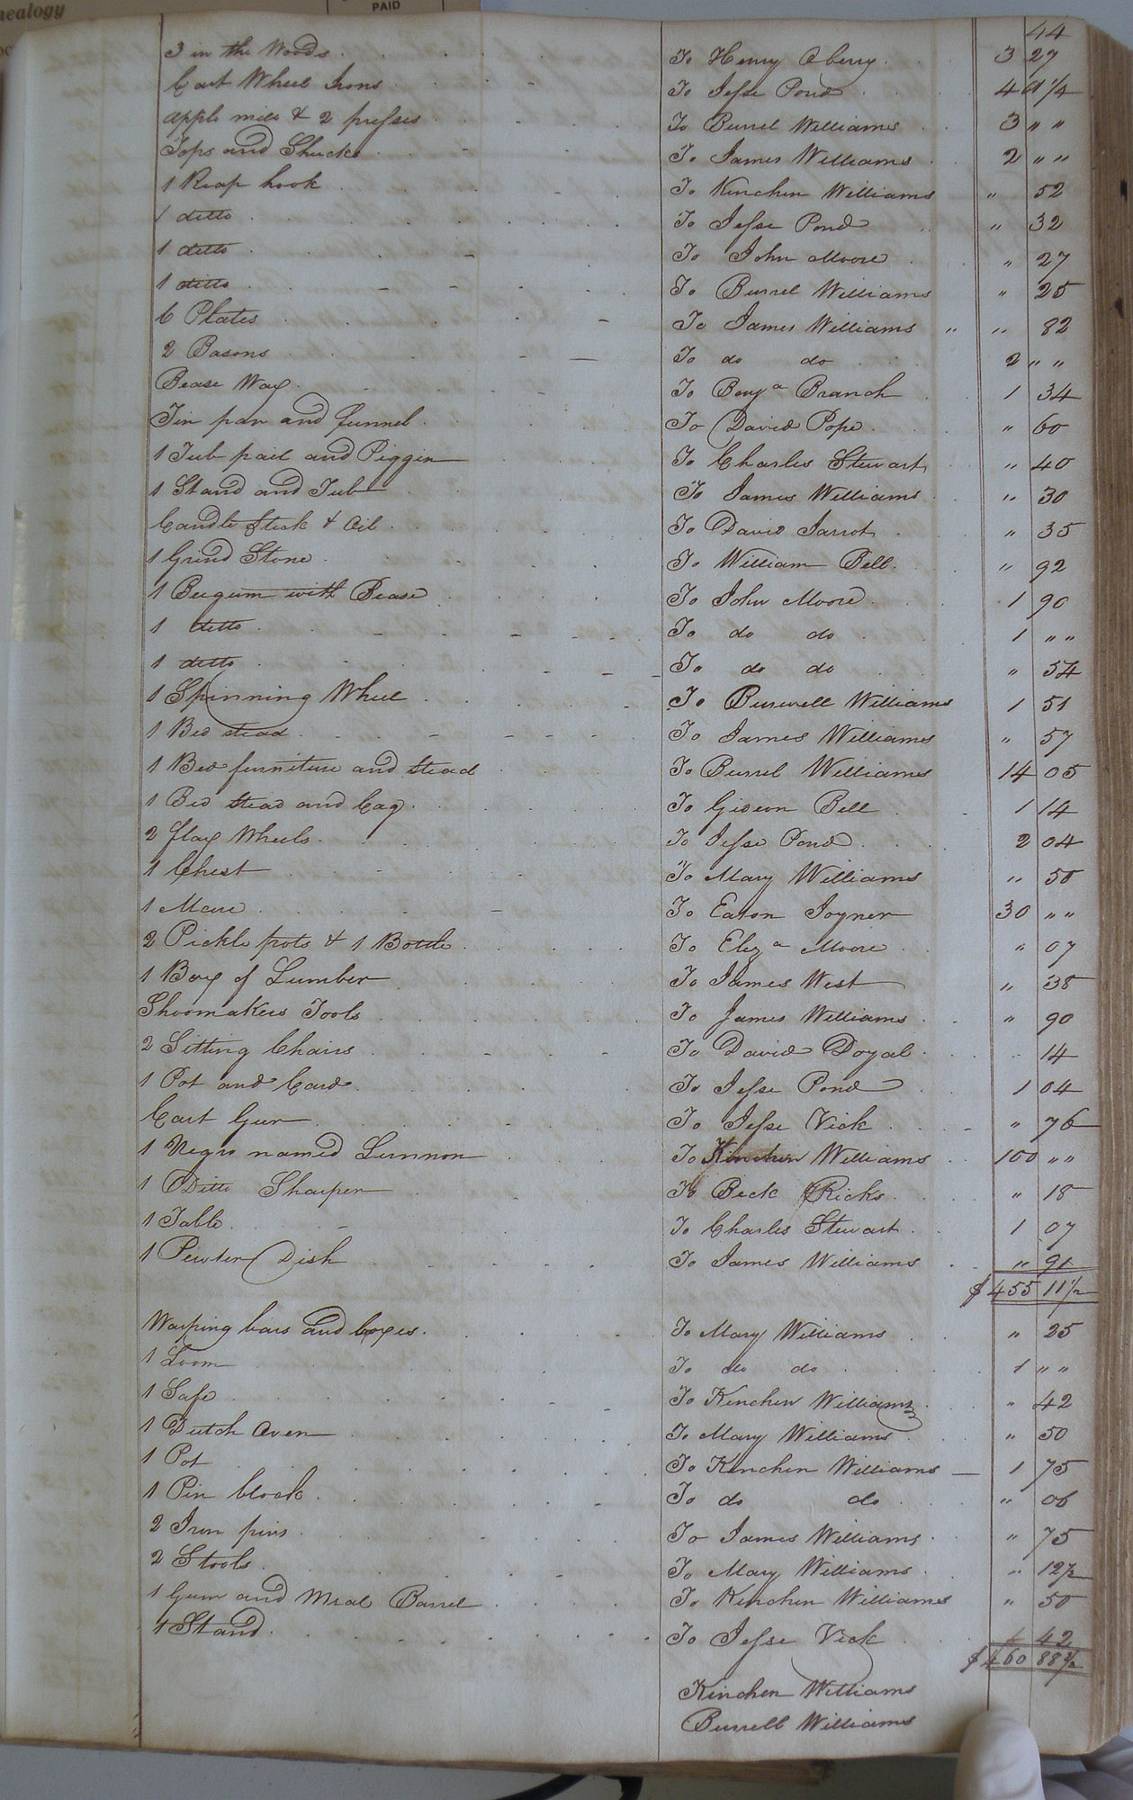 nealogy
PAID
44
3 in the Woods To Henry Oberry 3 27
Cart Wheel Irons To Jesse Pond 4 01/4
apple mill & 2 presses To Burrel Williams 3 " "
Tops and Shucks To James Williams 2 " "
1 Reap hook To Kinchen Williams " 52
1 ditto To Jesse Pond " 32
1 ditto To John Moore " 27
1 ditto To Burrel Williams " 25
6 Plates To James Williams " " 82
2 Basons To do do 2 " "
Bease Wax To Benjn Branch 1 34
Tin pan and funnel To David Pope " 60
1 Tub pail and Piggin To Charles Stewart " 40
1 Stand and Tub To James Williams " 30
Candle Stick & Oil To David Jarrot " 35
1 Grind Stone To William Bell " 92
1 Beegum with Bease To John Moore 1 90
1 ditto To do do 1 " "
1 ditto To do do " 54
1 Spinning Wheel To Burwell Williams 1 51
1 Bed stead To James Williams " 57
1 Bed furniture and stead To Burrel Williams 14 05
1 Bed stead and Cag To Gideon Bell 1 14
2 flax Wheels To Jesse Pond 2 04
1 Chest To Mary Williams " 50
1 Mare To Eaton Joyner 30 " "
2 Pickle pots & 1 Bottle To Eliza Moore " 07
1 Box of Lumber To James West " 38
Shoomakers Tools To James Williams " 90
2 Sitting Chairs To David Doyal 14
1 Pot and Card To Jesse Pond 1 04
Cart Gear To Jesse Vick " 76
1 Negro named Lunnon To Kinchen Williams 100 " "
1 Ditto Sharper To Beck Ricks " 18
1 Table To Charles Stewart 1 07
1 Pewter Dish To James Williams " 91
$455 11 1/2
Warping bars and boxes To Mary Williams " 25
1 Loom To do do 1 " "
1 Safe To Kinchen Williams " 42
1 Dutch Oven To Mary Williams " 50
1 Pot To Kinchen Williams 1 75
1 Pin block To do do " 06
2 Iron pins To James Williams " 75
2 Stools To Mary Williams " 12 1/2
1 Gum and Meal Barrel To Kinchen Williams " 50
1 Stand To Jesse Vick 42
$460 88 1/2
Kinchen Williams
Burrell Williams